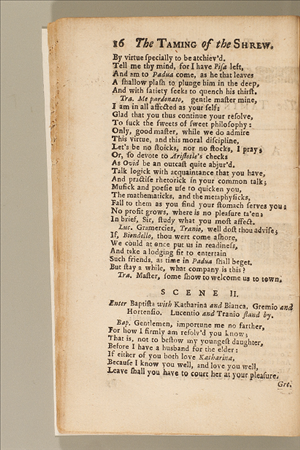 16 The TAMING of the SHREW.
By virtue ſpecially to be atchiev'd.
Tell me thy mind, for I have Piſa left,
And am to Padua come, as he that leaves
A ſhallow plaſh to plunge him in the deep,
And with ſatiety ſeeks to quench his thirſt.
Tra. Me pardonato, gentle maſter mine,
I am in all affected as your ſelf:
Glad that you thus continue your reſolve,
To ſuck the ſweets of ſweet philoſophy:
Only, good maſter, while we do admire
This virtue, and this moral diſcipline,
Let's be no ſtoicks, nor no ſtocks, I pray;
Or, ſo devote to Ariſtotle's checks
As Ovid be an outcaſt quite abjur'd.
Talk logick with acquaintance that you have,
And practiſe rhetorick in your common talk;
Muſick and poeſie uſe to quicken you,
The mathematicks, and the metaphyſicks,
Fall to them as you find your ſtomach ſerves you:
No profit grows, where is no pleaſure ta'en:
In brief, Sir, ſtudy what you moſt affect.
Luc. Gramercies, Tranio, well doſt thou adviſe;
If, Biondello, thou wert come aſhore,
We could at once put us in readineſs,
And take a lodging fit to entertain
Such friends, as time in Padua ſhall beget.
But ſtay a while, what company is this?
Tra. Maſter, ſome ſhow to welcome us to town.
SCENE II.
Enter Baptiſta with Katharina and Bianca, Gremio and
Hortenſio. Lucentio and Tranio ſtand by.
Bap. Gentlemen, importune me no farther,
For how I firmly am reſolv'd you know;
That is, not to beſtow my youngeſt daughter,
Before I have a husband for the elder:
If either of you both love Katharina,
Becauſe I know you well, and love you well,
Leave ſhall you have to court her at your pleaſure.
Gre.